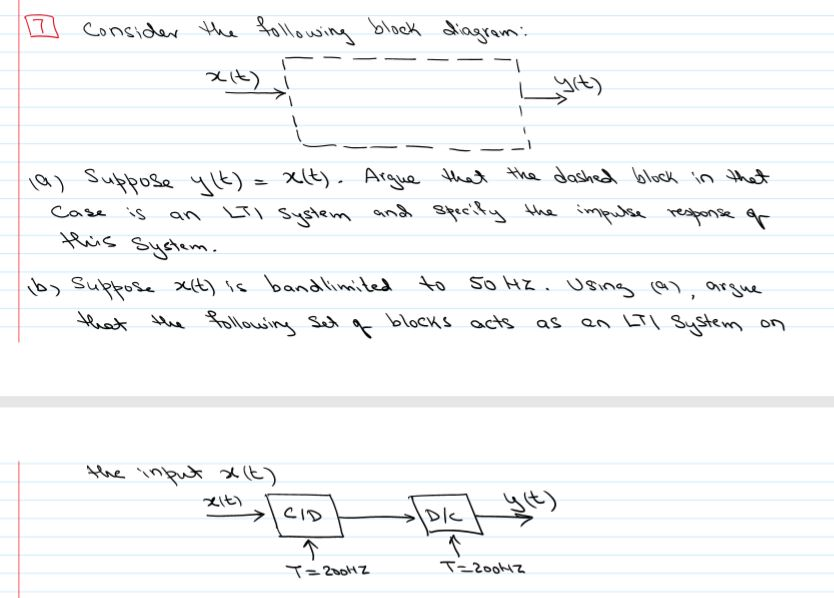 7 Consider the following block diagram:
x(t) y(t)
(a) Suppose y(t) = x(t). Argue that the dashed block in that
case is an LTI system and specify the impulse response of
this system.
(b) Suppose x(t) is bandlimited to 50 Hz. Using (a), argue
that the following set of blocks acts as an LTI system on
the input x(t)
x(t) C/D D/C y(t)
T=200HZ T=200HZ